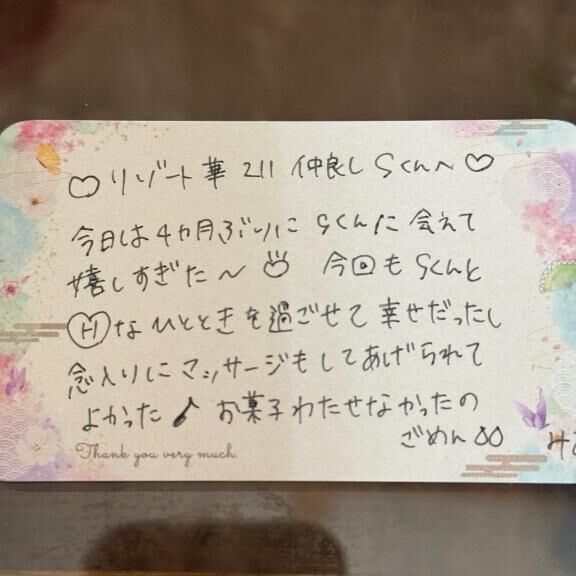 ♡リゾート華 211 仲良しSくんへ♡
今日は4カ月ぶりにSくんに会えて
嬉しすぎた〜 今回もSくんと
Hなひとときを過ごせて幸せだったし
念入りにマッサージもしてあげられて
よかった♪ お菓子わたせなかったの
ごめん
Thank you very much.